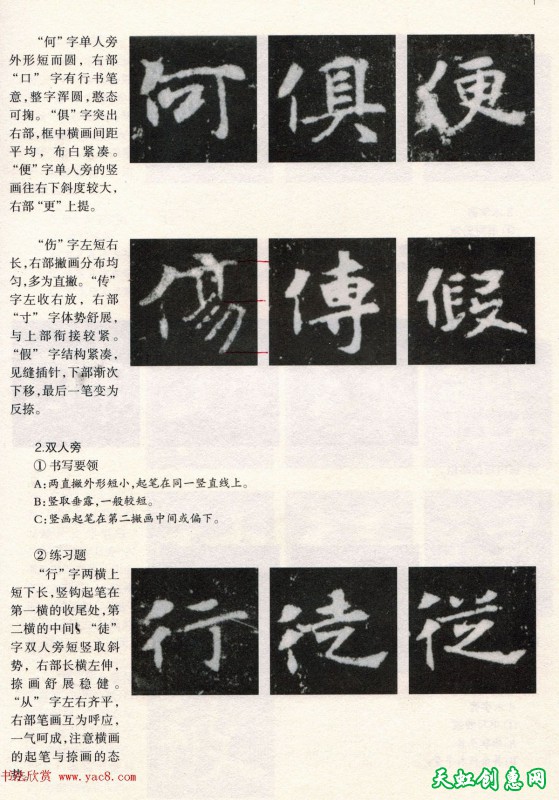 “何”字单人旁
外形短而圆，右部
“口”字有行书笔
意，整字浑圆，憨态
可掬。“俱”字突出
右部，框中横画间距
平均，布白紧凑。
“便”字单人旁的竖
画往右下斜度较大，
右部“更”上提。
何 俱 便
“伤”字左短右
长，右部撇画分布均
匀，多为直撇。“传”
字左收右放，右部
“寸”字体势舒展，
与上部衔接较紧。
“假”字结构紧凑，
见缝插针，下部渐次
下移，最后一笔变为
反捺。
傷 傳 假
2.双人旁
① 书写要领
A：两直撇外形短小，起笔在同一竖直线上。
B：竖取垂露，一般较短。
C：竖画起笔在第二撇画中间或偏下。
② 练习题
“行”字两横上
短下长，竖钩起笔在
第一横的收尾处，第
二横的中间。“徒”
字双人旁短竖取斜
势，右部长横左伸，
捺画舒展稳健。
“从”字左右齐平，
右部笔画互为呼应，
一气呵成，注意横画
的起笔与捺画的态
势。
行 徒 從
书法欣赏 www.yac8.com
天虹创意网